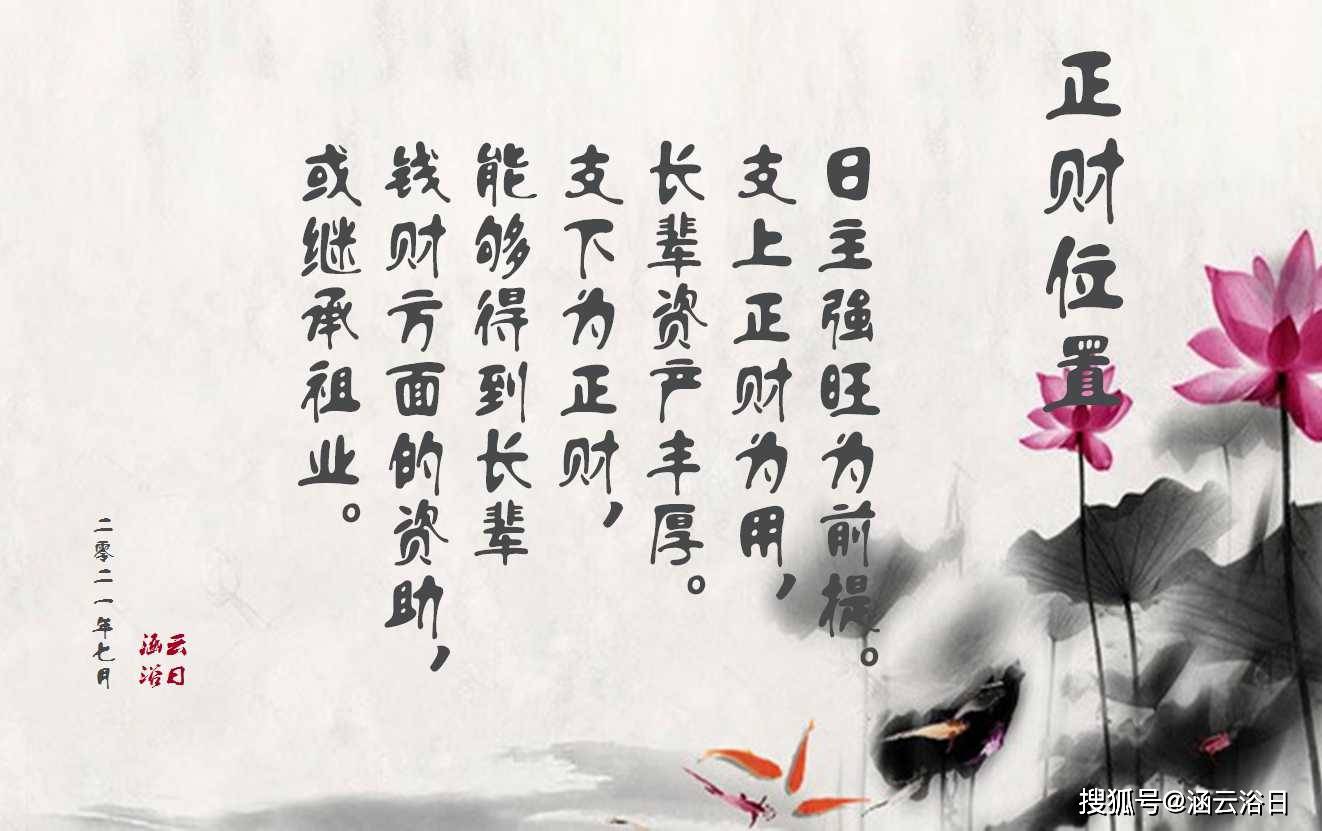 正财位置
日主强旺为前提。
支上正财为用，
长辈资产丰厚。
支下为正财，
能够得到长辈
钱财方面的资助，
或继承祖业。
涵云
浴日
二零二一年七月
搜狐号@涵云浴日